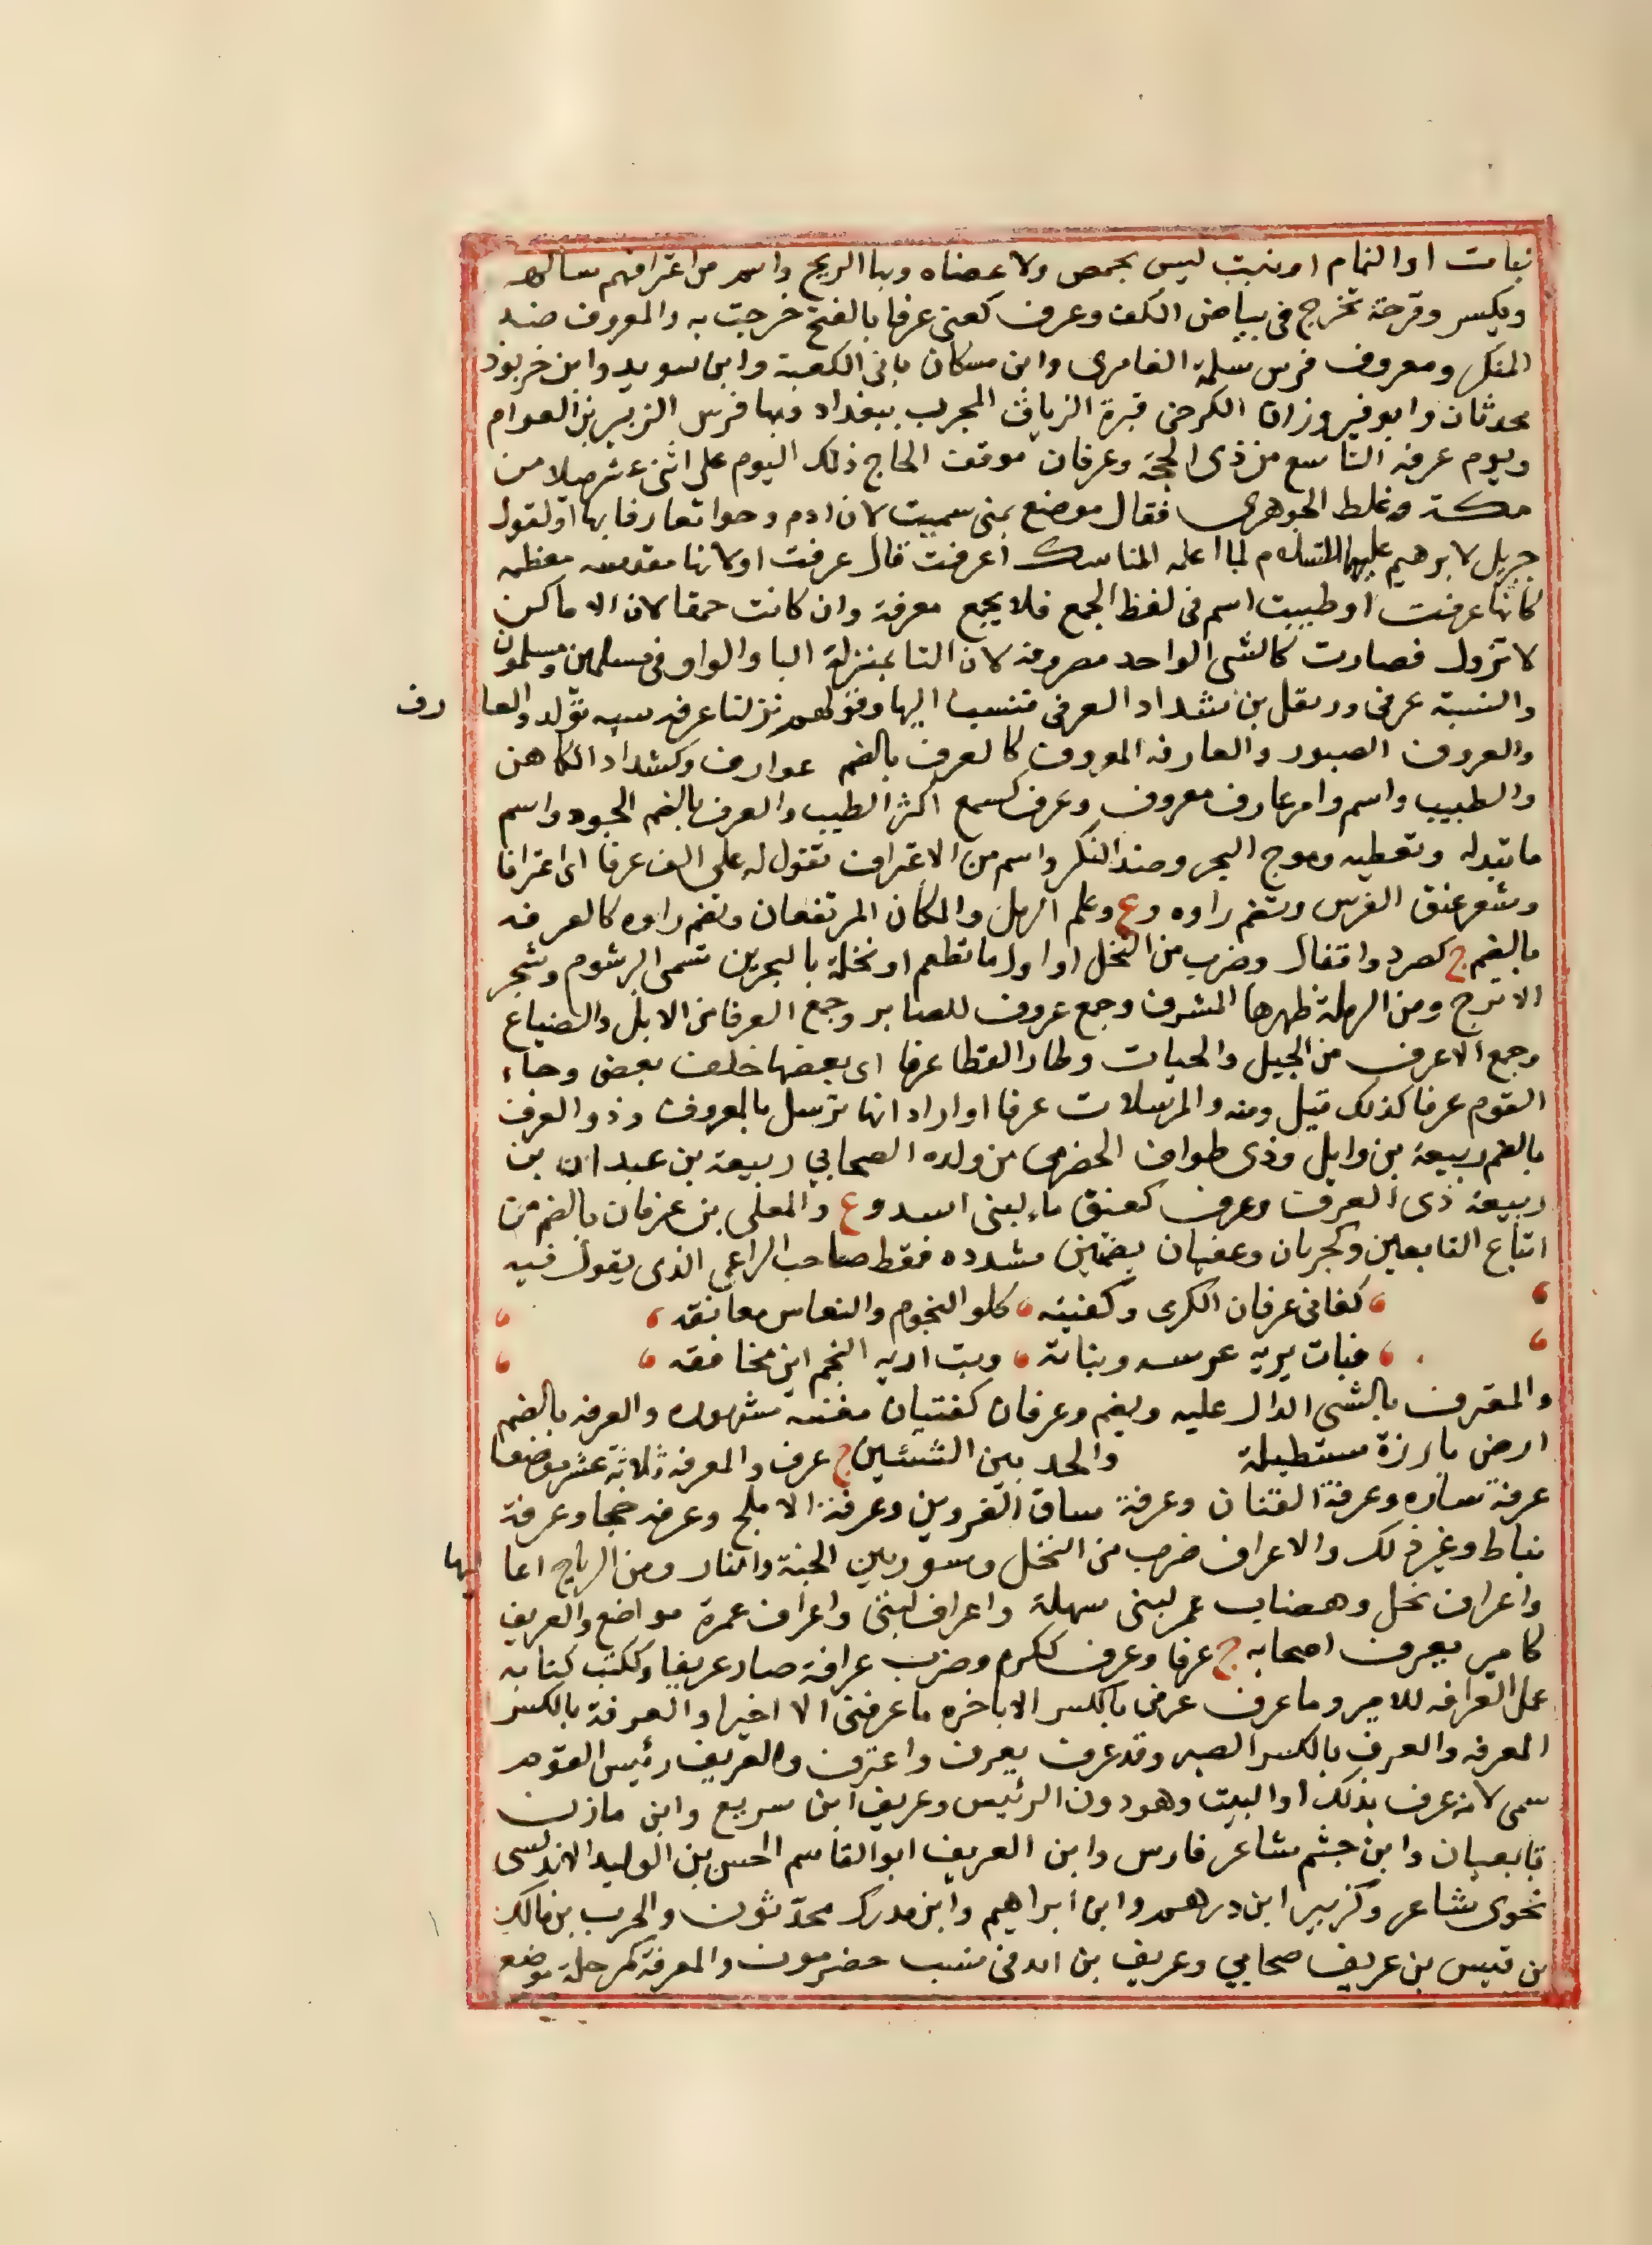 نبات او الثمام او نبت ليس بحمض ولا عضاه وبها الريح واسم من اعترافهم سالهم
ويكسر وقرحة تخرج في بياض الكف وعرف كعني عرفا بالفتح خرجت به والمعروف ضد
المنكر ومعروف فرس سلمة الغامري وابن مسكان باني الكعبة وابن سويد وابن خربوذ
محدثان وابو فيروزان الكرخي قبره الترياق المجرب ببغداد وبها فرس الزبير بن العوام
ويوم عرفه التاسع من ذي الحجة وعرفات موقف الحاج ذلك اليوم على اثنى عشر ميلا من
مكة وغلط الجوهري فقال موضع بمنى سميت لان ادم وحوا تعارفا بها او لقول
جبريل لابرهيم عليهما السلام لما اعلمه المناسك اعرفت قال عرفت او لانها مقدسه معظمه
كانها عرفت او طيبت اسم في لفظ الجمع فلا يجمع معرفة وان كانت جمعا لان الاماكن
لا تزول فصارت كالشي الواحد مصروفه لان التا بمنزلة اليا والواو في مسلمين ومسلمون
والنسبة عرفي وزنفل بن شداد العرفي تنسب اليها وقولهم نزلنا عرفه شبيه مولد والعارف
والعروف الصبور والعارفه المعروف كالعرف بالضم عوارف وكشداد الكاهن
والطبيب واسم وامر عارف معروف وعرف كسمع اكثر الطيب والعرف بالضم الجود واسم
ما تبذله وتعطيه وموج البحر وضد النكر واسم من الاعتراف تقول له علي الف عرفا اى اعترافا
وشعر عنق الفرس وتضم راوه وع وعلم الرمل والمكان المرتفعان وتضم راوه كالعرفه
بالضم ج كصرد واقفال وضرب من النخل او اول ما تطعم او نخلة بالبحرين تسمى البرشوم وشجر
الاترج ومن الرملة ظهرها المشرف وجمع عروف للصابر وجمع العرفا من الابل والضباع
وجمع الاعرف من الخيل والحيات وطار القطا عرفا اى بعضها خلف بعض وجاء
القوم عرفا كذلك قيل ومنه والمرسلات عرفا او اراد انها ترسل بالمعروف وذو العرف
بالضم ربيعة بن وايل وذى طواف الحضرمى من ولده الصحابي ربيعة بن عبدان بن
ربيعة ذى العرف وعرف كعنق ماء لبنى اسد وع والمعلى بن عرفان بالضم من
اتباع التابعين وكجربان وعفتان بضمتين مشدده فقط صاحب الراعي الذى يقول فيه
كفاني عرفان الكرى وكفيته كلو النجوم والنعاس معانقه
فبات يريه عرسه وبناته وبت اريه النجم اين مخافقه
والمعترف بالشى الدال عليه ويضم وعرفان كعتبان مغنيه مشهوره والعرفه بالضم
ارض بارزة مستطيلة والحد بين الشيئين ج عرف والمعرفه ثلاثة عشر موضعا
عرفة ساره وعرفة القنان وعرفة ساق الفروين وعرفة الاملح وعرفه خجا وعرفة
نباط وغير ذلك والاعراف ضرب من النخل وسور بين الجنة والنار ومن الرياح اعاليها
واعراف نخل وهضاب حمر لبنى سهلة واعراف لبنى واعراف غمرة مواضع والعريف
كامير يعرف اصحابه ج عرفا وعرف ككرم وضرب عرافة صار عريفا وككتب كتابه
عمل العرافه للامير وما عرف عرفي بالكسر الا باخره ما عرفني الا اخيرا والعرفة بالكسر
المعرفه والعرف بالكسر الصبر وقد عرف يعرف واعترف والعريف رئيس القوم
سمى لانه عرف بذلك او النقيب وهو دون الرئيس وعريف ابن سريع وابن مازن
تابعيان وابن جشم شاعر فارس وابن العريف ابو القاسم الحسن بن الوليد الاندلسى
نحوى شاعر وكزبير ابن درهم وابن ابراهيم وابن مدرك محدثون والحرث بن مالك
بن قيس بن عريف صحابي وعريف بن ابد في نسب حضرموت والمعرفة كمرحلة موضع